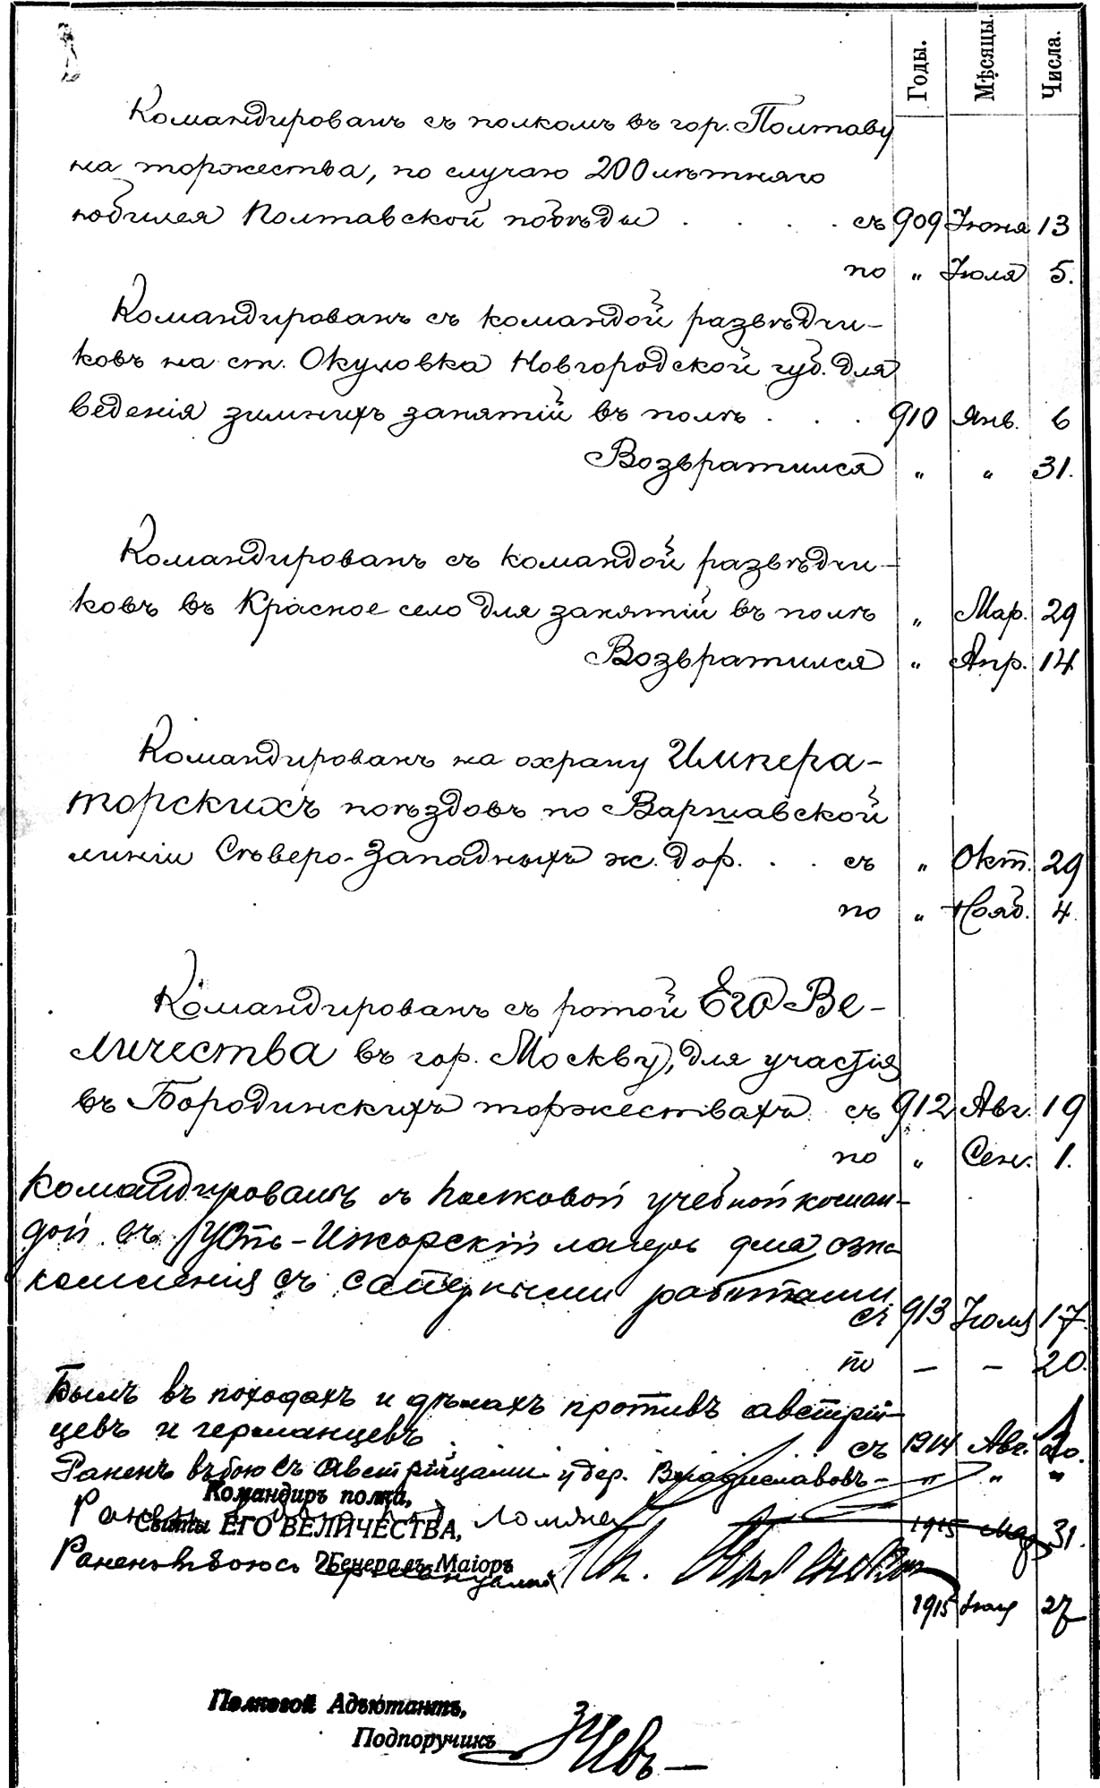 Годы.
Мѣсяцы.
Числа.
Командированъ съ полкомъ въ гор. Полтаву
на торжества, по случаю 200 лѣтняго
юбилея Полтавской побѣды . . . . съ 909 Іюня 13
по „ Іюля 5.
Командированъ съ командой развѣдчи-
ковъ на ст. Окуловка Новгородской губ. для
веденія зимнихъ занятій въ полѣ . . . 910 Янв. 6
Возвратился „ „ 31.
Командированъ съ командой развѣдчи-
ковъ въ Красное село для занятій въ полѣ „ Мар. 29
Возвратился „ Апр. 14
Командированъ на охрану Импера-
торскихъ поѣздовъ по Варшавской
линіи Сѣверо-Западныхъ ж. дор. . . съ „ Окт. 29
по „ Нояб. 4
Командированъ съ ротой Его Ве-
личества въ гор. Москву, для участія
въ Бородинскихъ торжествахъ съ 912 Авг. 19
по „ Сен. 1.
Командированъ съ полковой учебной коман-
дой въ Усть-Ижорскій лагерь для озна
комленія съ саперными работами
съ 913 Іюля 17.
по — — 20.
Былъ въ походахъ и дѣлахъ противъ австрій-
цевъ и германцевъ съ 1914 Авг.
Раненъ въ бою съ Австрійцами у дер. Владиславовъ- „ „ „
Командиръ полка,
Раненъ Ломжа 1915 31.
Свиты ЕГО ВЕЛИЧЕСТВА,
Раненъ въ бою съ Германцами
Генералъ-Маіоръ
1915 Іюля 27
Полковой Адъютантъ,
Подпоручикъ